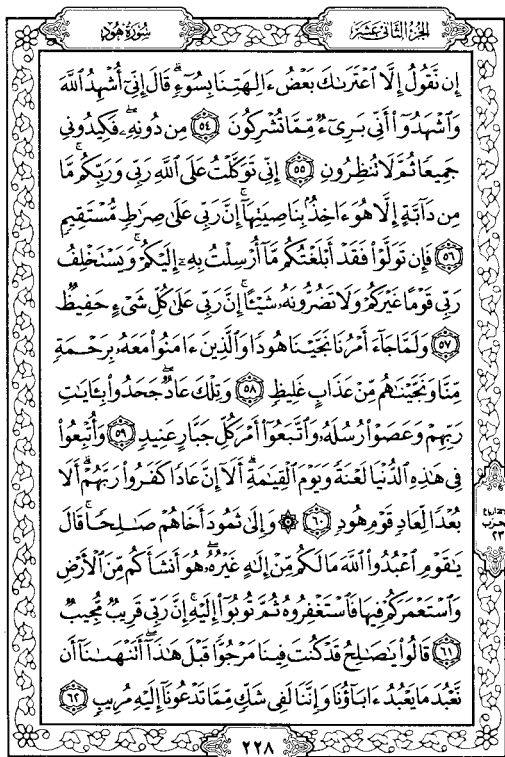 سُورَةُ هُودٍ
الجُزْءُ الثَّانِى عَشَرَ
إِن نَّقُولُ إِلَّا ٱعْتَرَىٰكَ بَعْضُ ءَالِهَتِنَا بِسُوٓءٍۗ قَالَ إِنِّىٓ أُشْهِدُ ٱللَّهَ
وَٱشْهَدُوٓا۟ أَنِّى بَرِىٓءٌ مِّمَّا تُشْرِكُونَ ٥٤ مِن دُونِهِۦۖ فَكِيدُونِى
جَمِيعًا ثُمَّ لَا تُنظِرُونِ ٥٥ إِنِّى تَوَكَّلْتُ عَلَى ٱللَّهِ رَبِّى وَرَبِّكُمۚ مَّا
مِن دَآبَّةٍ إِلَّا هُوَ ءَاخِذٌۢ بِنَاصِيَتِهَآۚ إِنَّ رَبِّى عَلَىٰ صِرَٰطٍ مُّسْتَقِيمٍ
٥٦ فَإِن تَوَلَّوْا۟ فَقَدْ أَبْلَغْتُكُم مَّآ أُرْسِلْتُ بِهِۦٓ إِلَيْكُمْۚ وَيَسْتَخْلِفُ
رَبِّى قَوْمًا غَيْرَكُمْ وَلَا تَضُرُّونَهُۥ شَيْـًٔاۚ إِنَّ رَبِّى عَلَىٰ كُلِّ شَىْءٍ حَفِيظٌ
٥٧ وَلَمَّا جَآءَ أَمْرُنَا نَجَّيْنَا هُودًا وَٱلَّذِينَ ءَامَنُوا۟ مَعَهُۥ بِرَحْمَةٍ
مِّنَّا وَنَجَّيْنَٰهُم مِّنْ عَذَابٍ غَلِيظٍ ٥٨ وَتِلْكَ عَادٌۖ جَحَدُوا۟ بِـَٔايَٰتِ
رَبِّهِمْ وَعَصَوْا۟ رُسُلَهُۥ وَٱتَّبَعُوٓا۟ أَمْرَ كُلِّ جَبَّارٍ عَنِيدٍ ٥٩ وَأُتْبِعُوا۟
فِى هَٰذِهِ ٱلدُّنْيَا لَعْنَةً وَيَوْمَ ٱلْقِيَٰمَةِۗ أَلَآ إِنَّ عَادًا كَفَرُوا۟ رَبَّهُمْۗ أَلَا
بُعْدًا لِّعَادٍ قَوْمِ هُودٍ ٦٠ ۞ وَإِلَىٰ ثَمُودَ أَخَاهُمْ صَٰلِحًاۚ قَالَ
يَٰقَوْمِ ٱعْبُدُوا۟ ٱللَّهَ مَا لَكُم مِّنْ إِلَٰهٍ غَيْرُهُۥۖ هُوَ أَنشَأَكُم مِّنَ ٱلْأَرْضِ
وَٱسْتَعْمَرَكُمْ فِيهَا فَٱسْتَغْفِرُوهُ ثُمَّ تُوبُوٓا۟ إِلَيْهِۚ إِنَّ رَبِّى قَرِيبٌ مُّجِيبٌ
٦١ قَالُوا۟ يَٰصَٰلِحُ قَدْ كُنتَ فِينَا مَرْجُوًّا قَبْلَ هَٰذَآۖ أَتَنْهَىٰنَآ أَن
نَّعْبُدَ مَا يَعْبُدُ ءَابَآؤُنَا وَإِنَّنَا لَفِى شَكٍّ مِّمَّا تَدْعُونَآ إِلَيْهِ مُرِيبٍ ٦٢
٢٢٨
الحزب
٢٣